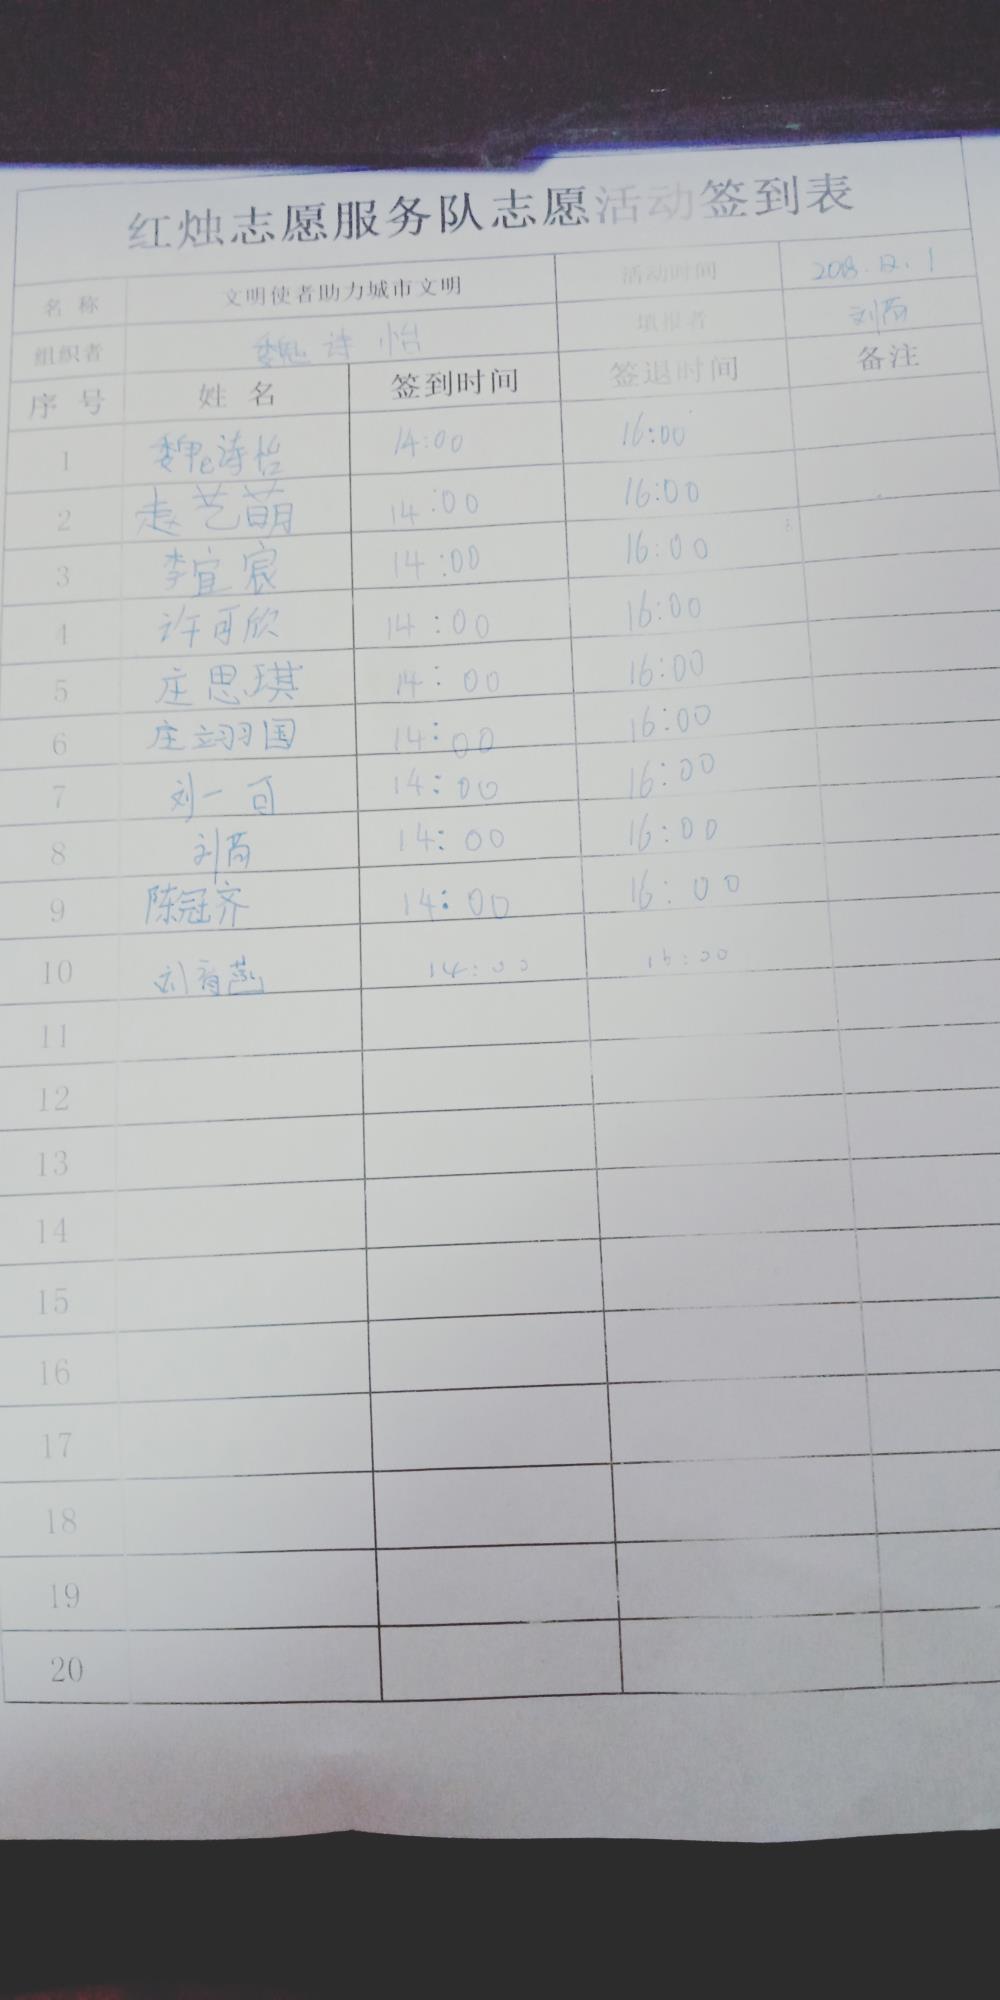 红烛志愿服务队志愿活动签到表
名称 文明使者助力城市文明 活动时间 2018.12.1
组织者 魏诗怡 填报者 刘芮
序号 姓名 签到时间 签退时间 备注
1 魏诗怡 14:00 16:00
2 赵艺萌 14:00 16:00
3 李宜宸 14:00 16:00
4 许可欣 14:00 16:00
5 庄思琪 14:00 16:00
6 庄翊国 14:00 16:00
7 刘一可 14:00 16:00
8 刘芮 14:00 16:00
9 陈冠齐 14:00 16:00
10 刘 14:00 16:00
11
12
13
14
15
16
17
18
19
20